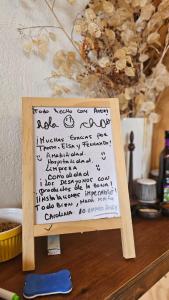 Todo hecho con Amor
hola ☺ chao
¡Muchas Gracias por
Tanto, Elsa y Fernando!
Amabilidad.
Hospitalidad.
Limpieza
Comodidad
¡Los Desayunos con
Productos de la zona!
¡Instalaciones impecables!
Todo Bien, María
Carolina